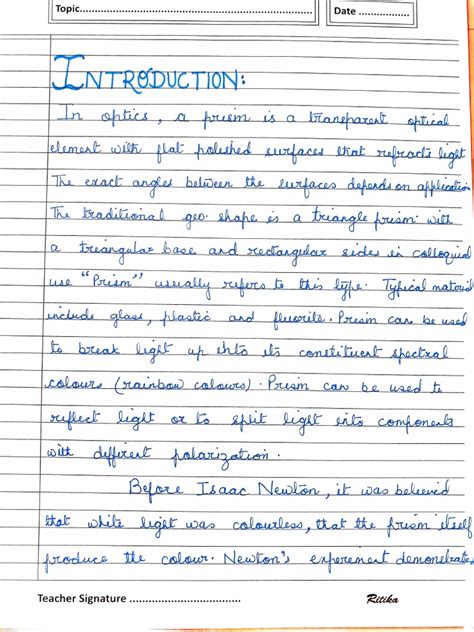 Topic..............................................................
Date ....................
INTRODUCTION:
In optics, a prism is a transparent optical
element with flat polished surfaces that refracts light
The exact angles between the surfaces depends on application
The traditional geo. shape is a triangle prism with
a triangular base and rectangular sides in colloquial
use "Prism" usually refers to this type. Typical material
include glass, plastic and fluorite. Prism can be used
to break light up into its constituent spectral
colours (rainbow colours). Prism can be used to
reflect light or to split light into components
with different polarization.
Before Isaac Newton, it was believed
that white light was colourless, that the prism itself
produce the colour. Newton's experement demonstrates
Teacher Signature ...................................
Ritika